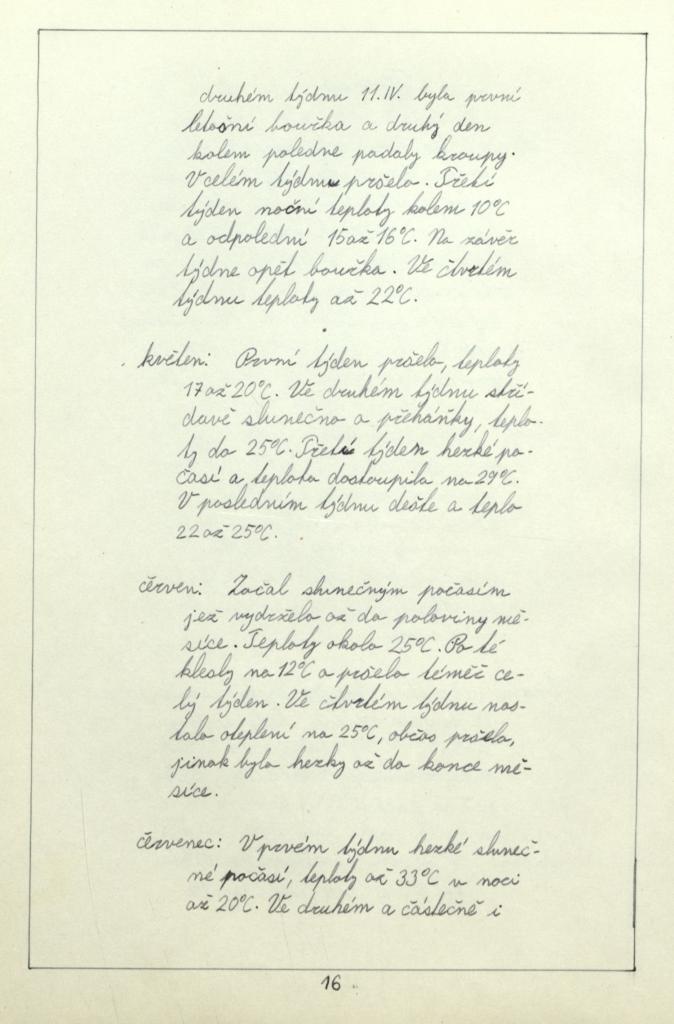 druhém týdnu 11.IV. byla první
letošní bouřka a druhý den
kolem poledne padaly kroupy.
V celém týdnu pršelo. Třetí
týden noční teploty kolem 10°C
a odpolední 15 až 16°C. Na závěr
týdne opět bouřka. Ve čtvrtém
týdnu teploty až 22°C.
květen: První týden pršelo, teploty
17 až 20°C. Ve druhém týdnu stří-
davě slunečno a přeháňky, teplo-
ty do 25°C. Třetí týden hezké po-
časí a teplota dostoupila na 29°C.
V posledním týdnu deště a teplo
22 až 25°C.
červen: Začal slunečným počasím
jež vydrželo až do poloviny mě-
síce. Teploty okolo 25°C. Po té
klesly na 12°C a pršelo téměř ce-
lý týden. Ve čtvrtém týdnu nas-
talo oteplení na 25°C, občas pršelo,
jinak bylo hezky až do konce mě-
síce.
červenec: V prvém týdnu hezké sluneč-
né počasí, teploty až 33°C v noci
až 20°C. Ve druhém a částečně i
16